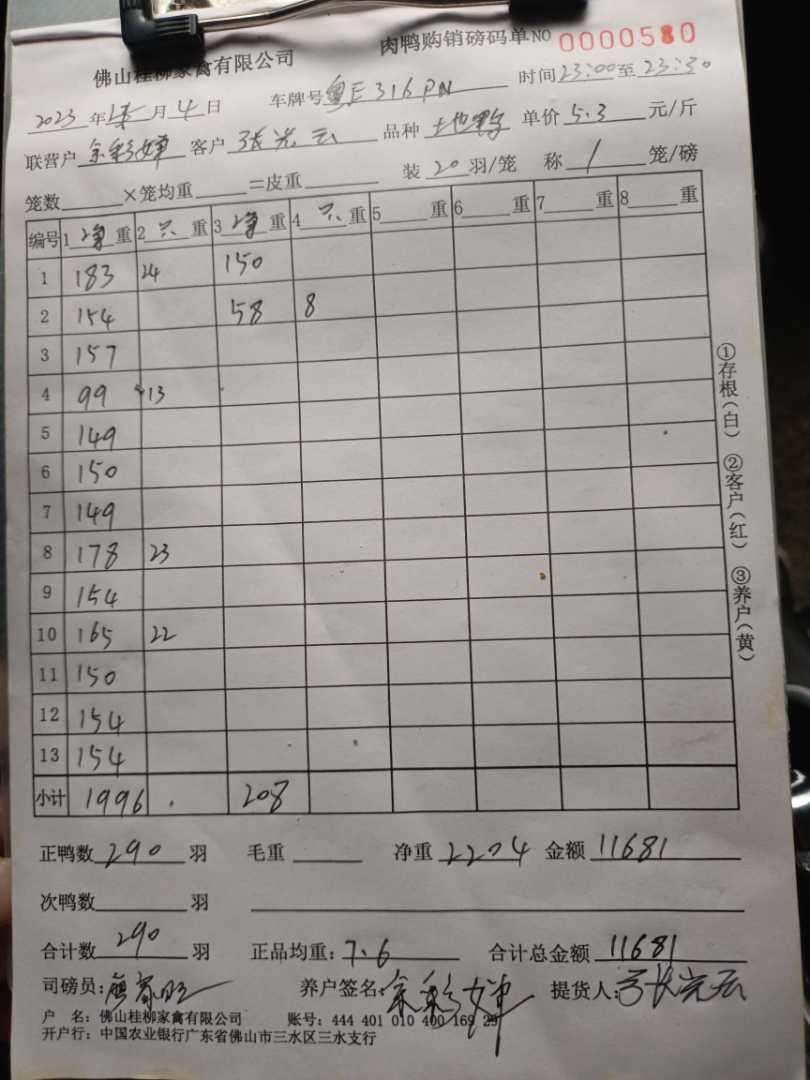 佛山桂柳家禽有限公司 肉鸭购销磅码单NO 0000580
2023年 月4日 车牌号粤E316PN 时间23:00至23:30
联营户余彩婵 客户张光云 品种土地 单价5.3元/斤
笼数 ×笼均重 =皮重 装20羽/笼 称1笼/磅
编号 1净重 2只重 3净重 4只重 5 重 6 重 7 重 8 重
1 183 24 150
2 154 58 8
3 157
4 99 13
5 149
6 150
7 149
8 178 23
9 154
10 165 22
11 150
12 154
13 154
小计 1996 208
①存根(白) ②客户(红) ③养户(黄)
正鸭数290羽 毛重 净重2204 金额11681
次鸭数 羽
合计数290羽 正品均重:7.6 合计总金额11681
司磅员: 养户签名:余彩婵 提货人:张光云
户 名:佛山桂柳家禽有限公司 账号:444 401 010 400 169 29
开户行:中国农业银行广东省佛山市三水区三水支行